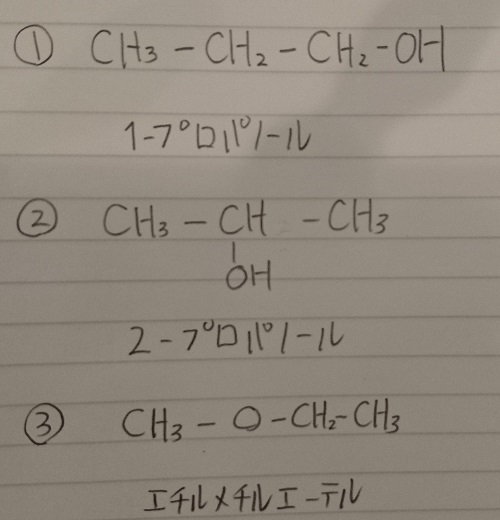 ① CH₃ - CH₂ - CH₂ - OH
1-プロパノール
② CH₃ - CH - CH₃
|
OH
2-プロパノール
③ CH₃ - O - CH₂ - CH₃
エチルメチルエーテル